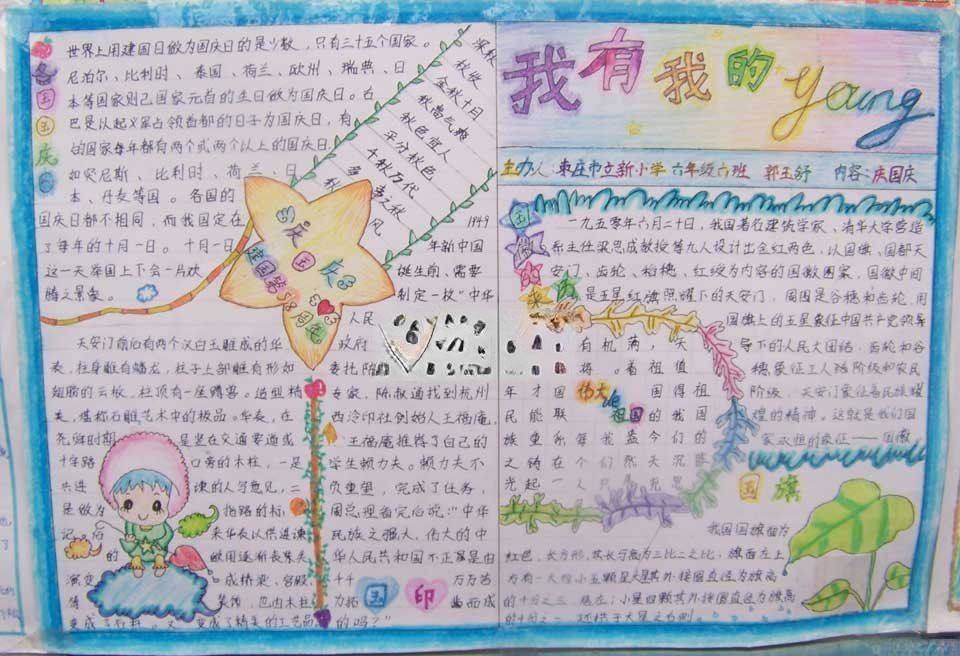 我有我的young
主办人:枣庄市立新小学 六年级六班 郭玉舒 内容:庆国庆
世界上用建国日做为国庆日的是少数,只有三十五个国家。
尼泊尔、比利时、泰国、荷兰、欧州、瑞典、日
本等国家则已国家元首的生日做为国庆日。古
巴是以起义军占领首都的日子为国庆日,有
的国家每年都有两个或两个以上的国庆日,
如贝尼斯、比利时、荷兰、日
本、丹麦等国。各国的
国庆日都不相同,而我国定在
了每年的十月一日。十月一日
这一天举国上下会一片欢
腾之景象。
国庆
秋收
金秋十月
秋高气爽
秋色宜人
平分秋色
千秋万代
多事之秋
庆国庆
建国第58周年
天安门前后有两个汉白玉雕成的华
表,柱身雕有蟠龙,柱子上部雕有形如
翅膀的云板,柱顶有一座蹲兽。造型精
美,堪称石雕艺术中的极品。华表,在
尧舜时期 是竖在交通要道或
十字路 口旁的木柱,一是
共进 谏的人写意见,二
是做为 指路的标
记,后 来华表以供进谏
的 做用逐渐丧失
演变 成桥梁、宫殿
等 装饰,也由木柱
变成了石料,又 变成了精美的工艺品
1949
年新中国
诞生前,需要
制定一枚“中华
人民
政府
委托陈
专家,陈叔通找到杭州
西泠印社创始人王福庵,
王福庵推荐了自己的
学生顿力夫。顿力夫不
负重望,完成了任务,
周总理看完后说:“中华
民族之强大,伟大的中
华人民共和国不正是由
千千 万万
国印
而成
的吗?”
国徽的来历
一九五零年六月二十日,我国著名建筑学家、清华大学营造
系主任梁思成教授等九人设计出金红两色,以国旗、国都天
安门、齿轮、稻穗、红绶为内容的国徽图案,国徽中间
是五星红旗照耀下的天安门,周围是谷穗和齿轮,用
国旗上的五星象征中国共产党领导
导下的人民大团结,齿轮和谷
穗象征工人阶级和农民
阶级,天安门象征着民族辉
煌的精神。这就是我们国
家永恒的象征——国徽
有机满,天
将。看祖值
年才国 国得祖
民能联 的我国
伟大的祖国
国旗
我国国旗面为
红色,长方形,其长与高为三比二之比,旗面左上
方有一大四小五颗星,大星其外接圆直径为旗高
的十分之三,居左;小星四颗其外接圆直径为旗高
的十分之一,环拱于大星之右侧。